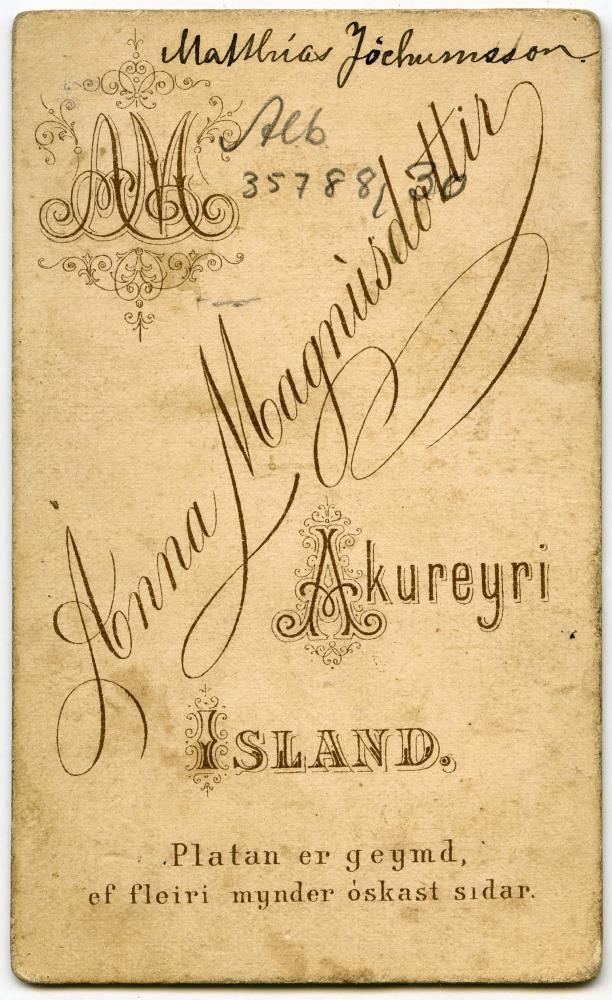 Matthías Jochumsson.
AM
Alb
35788, 30
Anna Magnúsdóttir
Akureyri
ÍSLAND.
Platan er geymd,
ef fleiri mynder óskast sıdar.